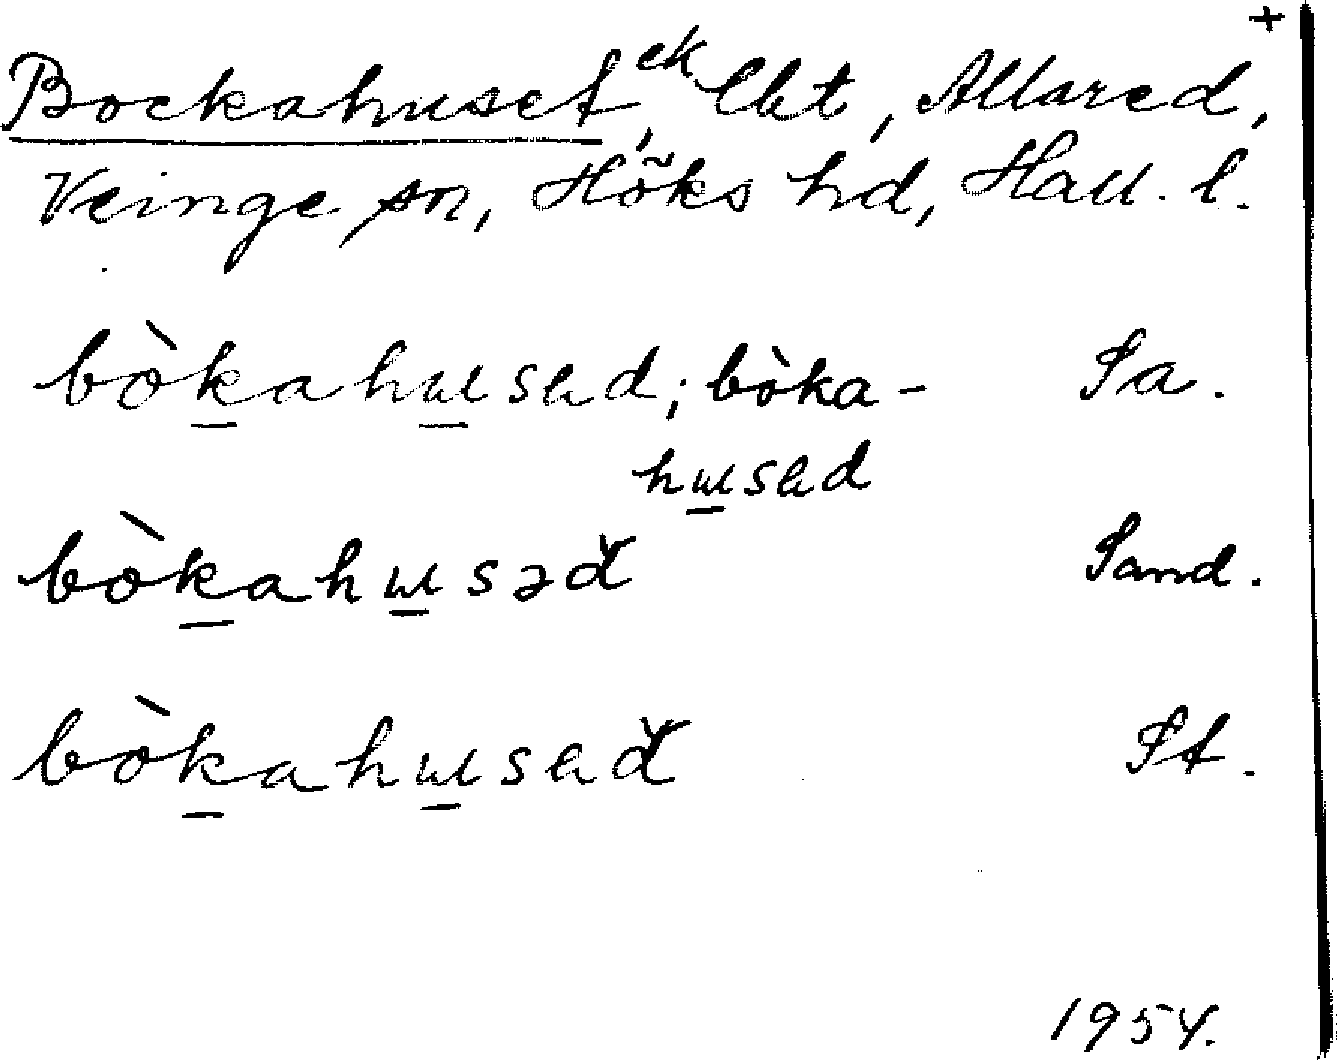 +
Bockahuset, ck lht, Allared,
Veinge sn, Höks hd, Hall. l.
bòk̲ahu̲sed; bòka- Sa.
hu̲sed
bòk̲ahu̲səd̆ Sand.
bòk̲ahu̲sed̆ St.
1954.